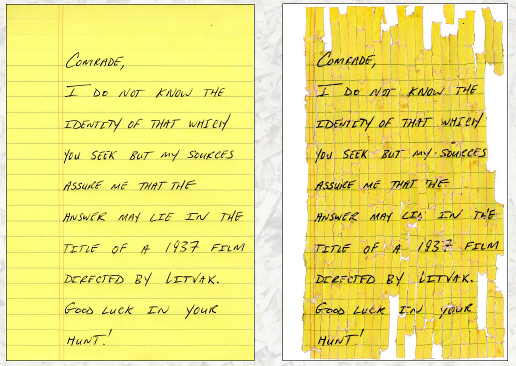 COMRADE,
I DO NOT KNOW THE
IDENTITY OF THAT WHICH
YOU SEEK BUT MY SOURCES
ASSURE ME THAT THE
ANSWER MAY LIE IN THE
TITLE OF A 1937 FILM
DIRECTED BY LITVAK.
GOOD LUCK IN YOUR
HUNT!
COMRADE,
I DO NOT KNOW THE
IDENTITY OF THAT WHICH
YOU SEEK BUT MY SOURCES
ASSURE ME THAT THE
ANSWER MAY LIE IN THE
TITLE OF A 1937 FILM
DIRECTED BY LITVAK.
GOOD LUCK IN YOUR
HUNT!